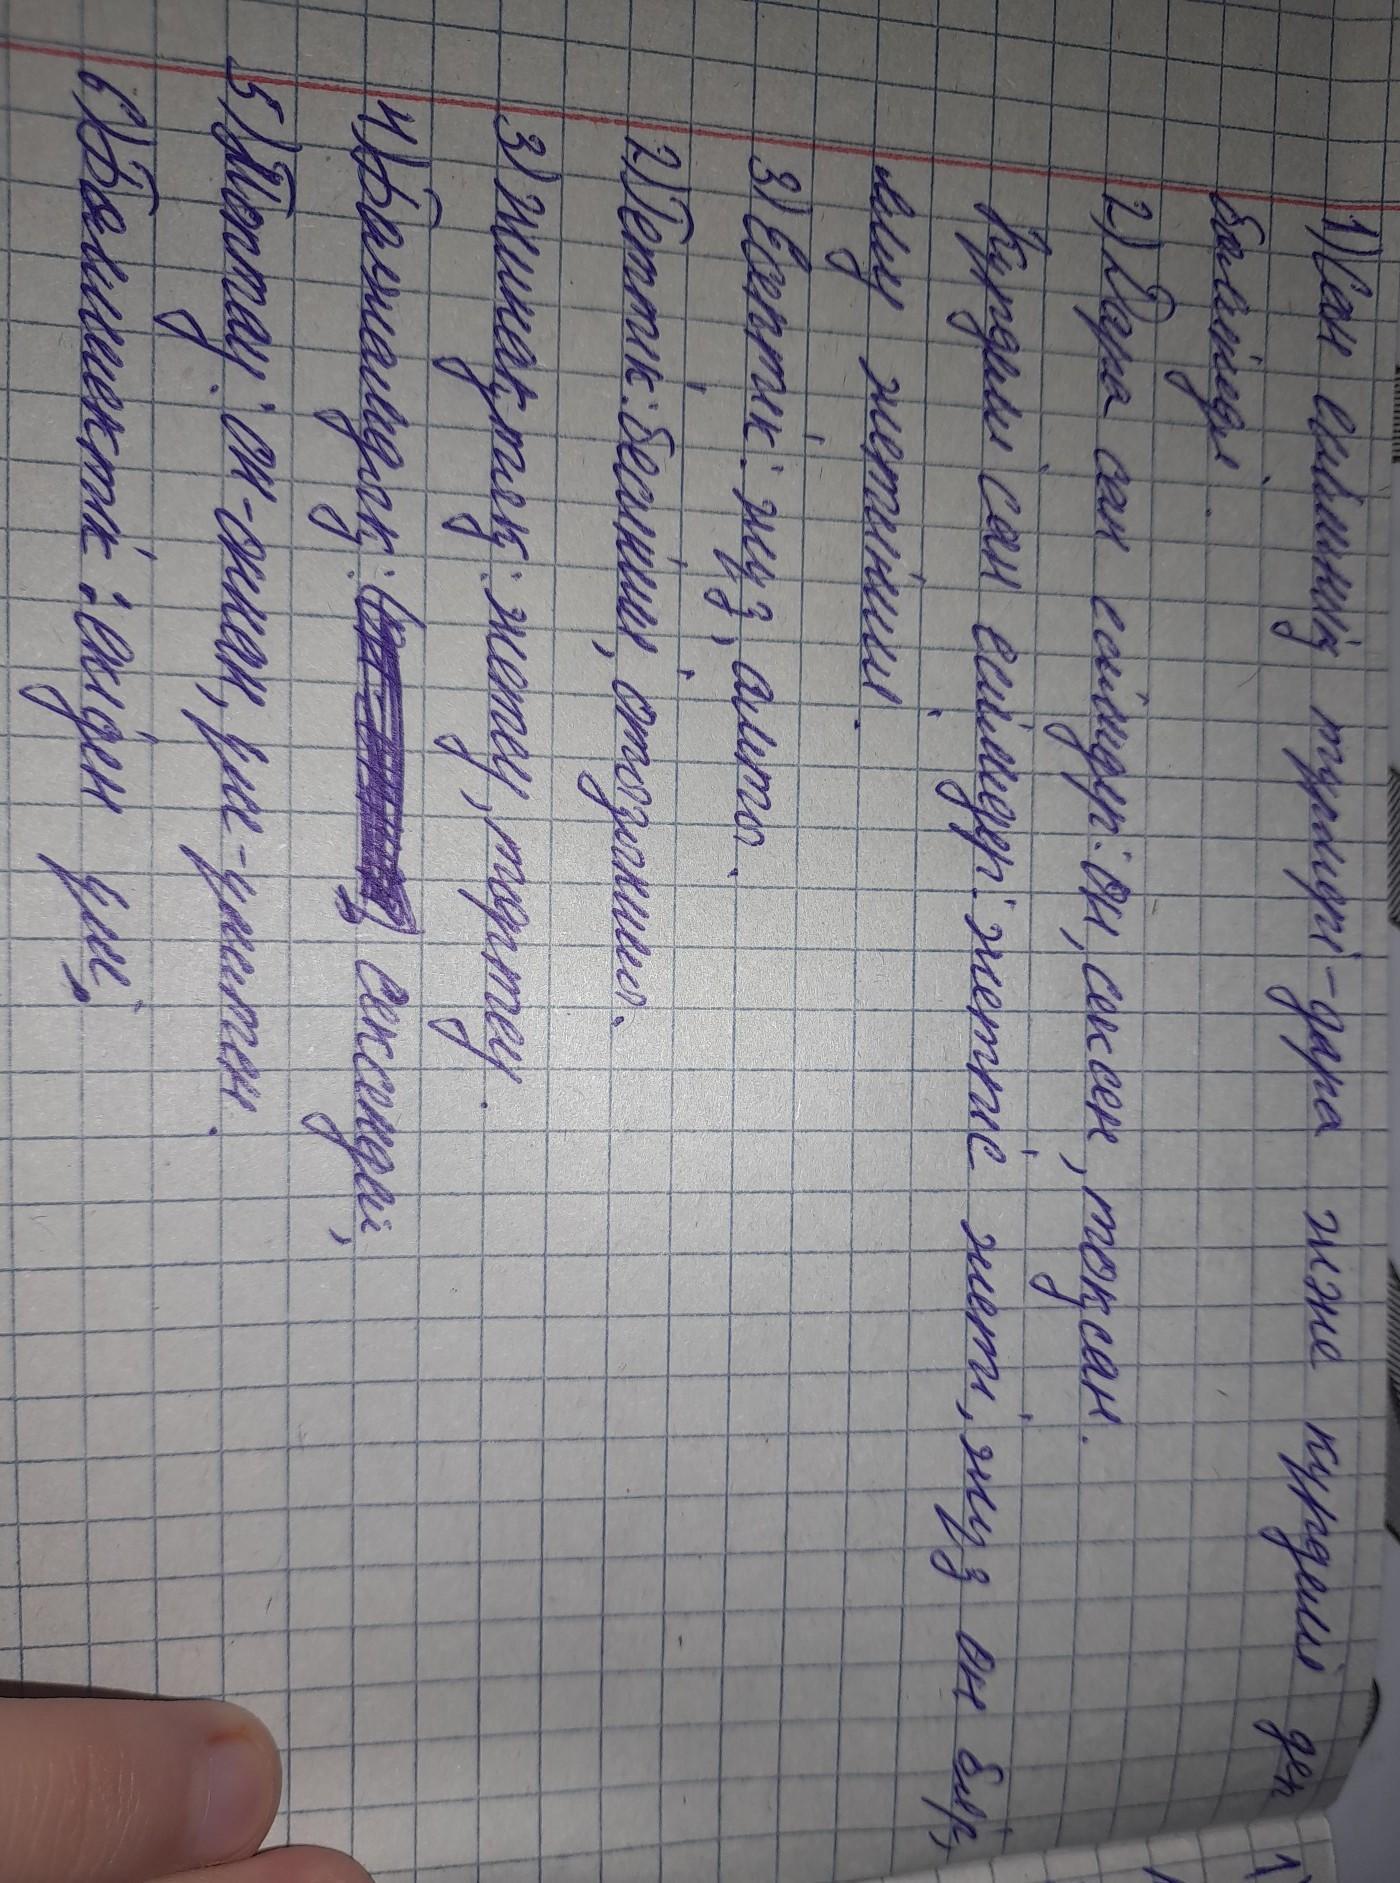 1) Сан есімнің түрлері - дара және күрделі деп
бөлінеді.
2) Дара сан есімдер: он, сексен, тоқсан.
Күрделі сан есімдер: жетпіс жеті, жүз он бір,
елу жетінші.
3) Есептік: жүз, алты.
2) Реттік: бесінші, отозыншы.
3) Жинақтық: жетеу, төртеу.
4) Болжалдық: сексендей,
5) Топтау: он-оннан, үш-үштен.
6) Бөлшектік: екіден үш,
1)